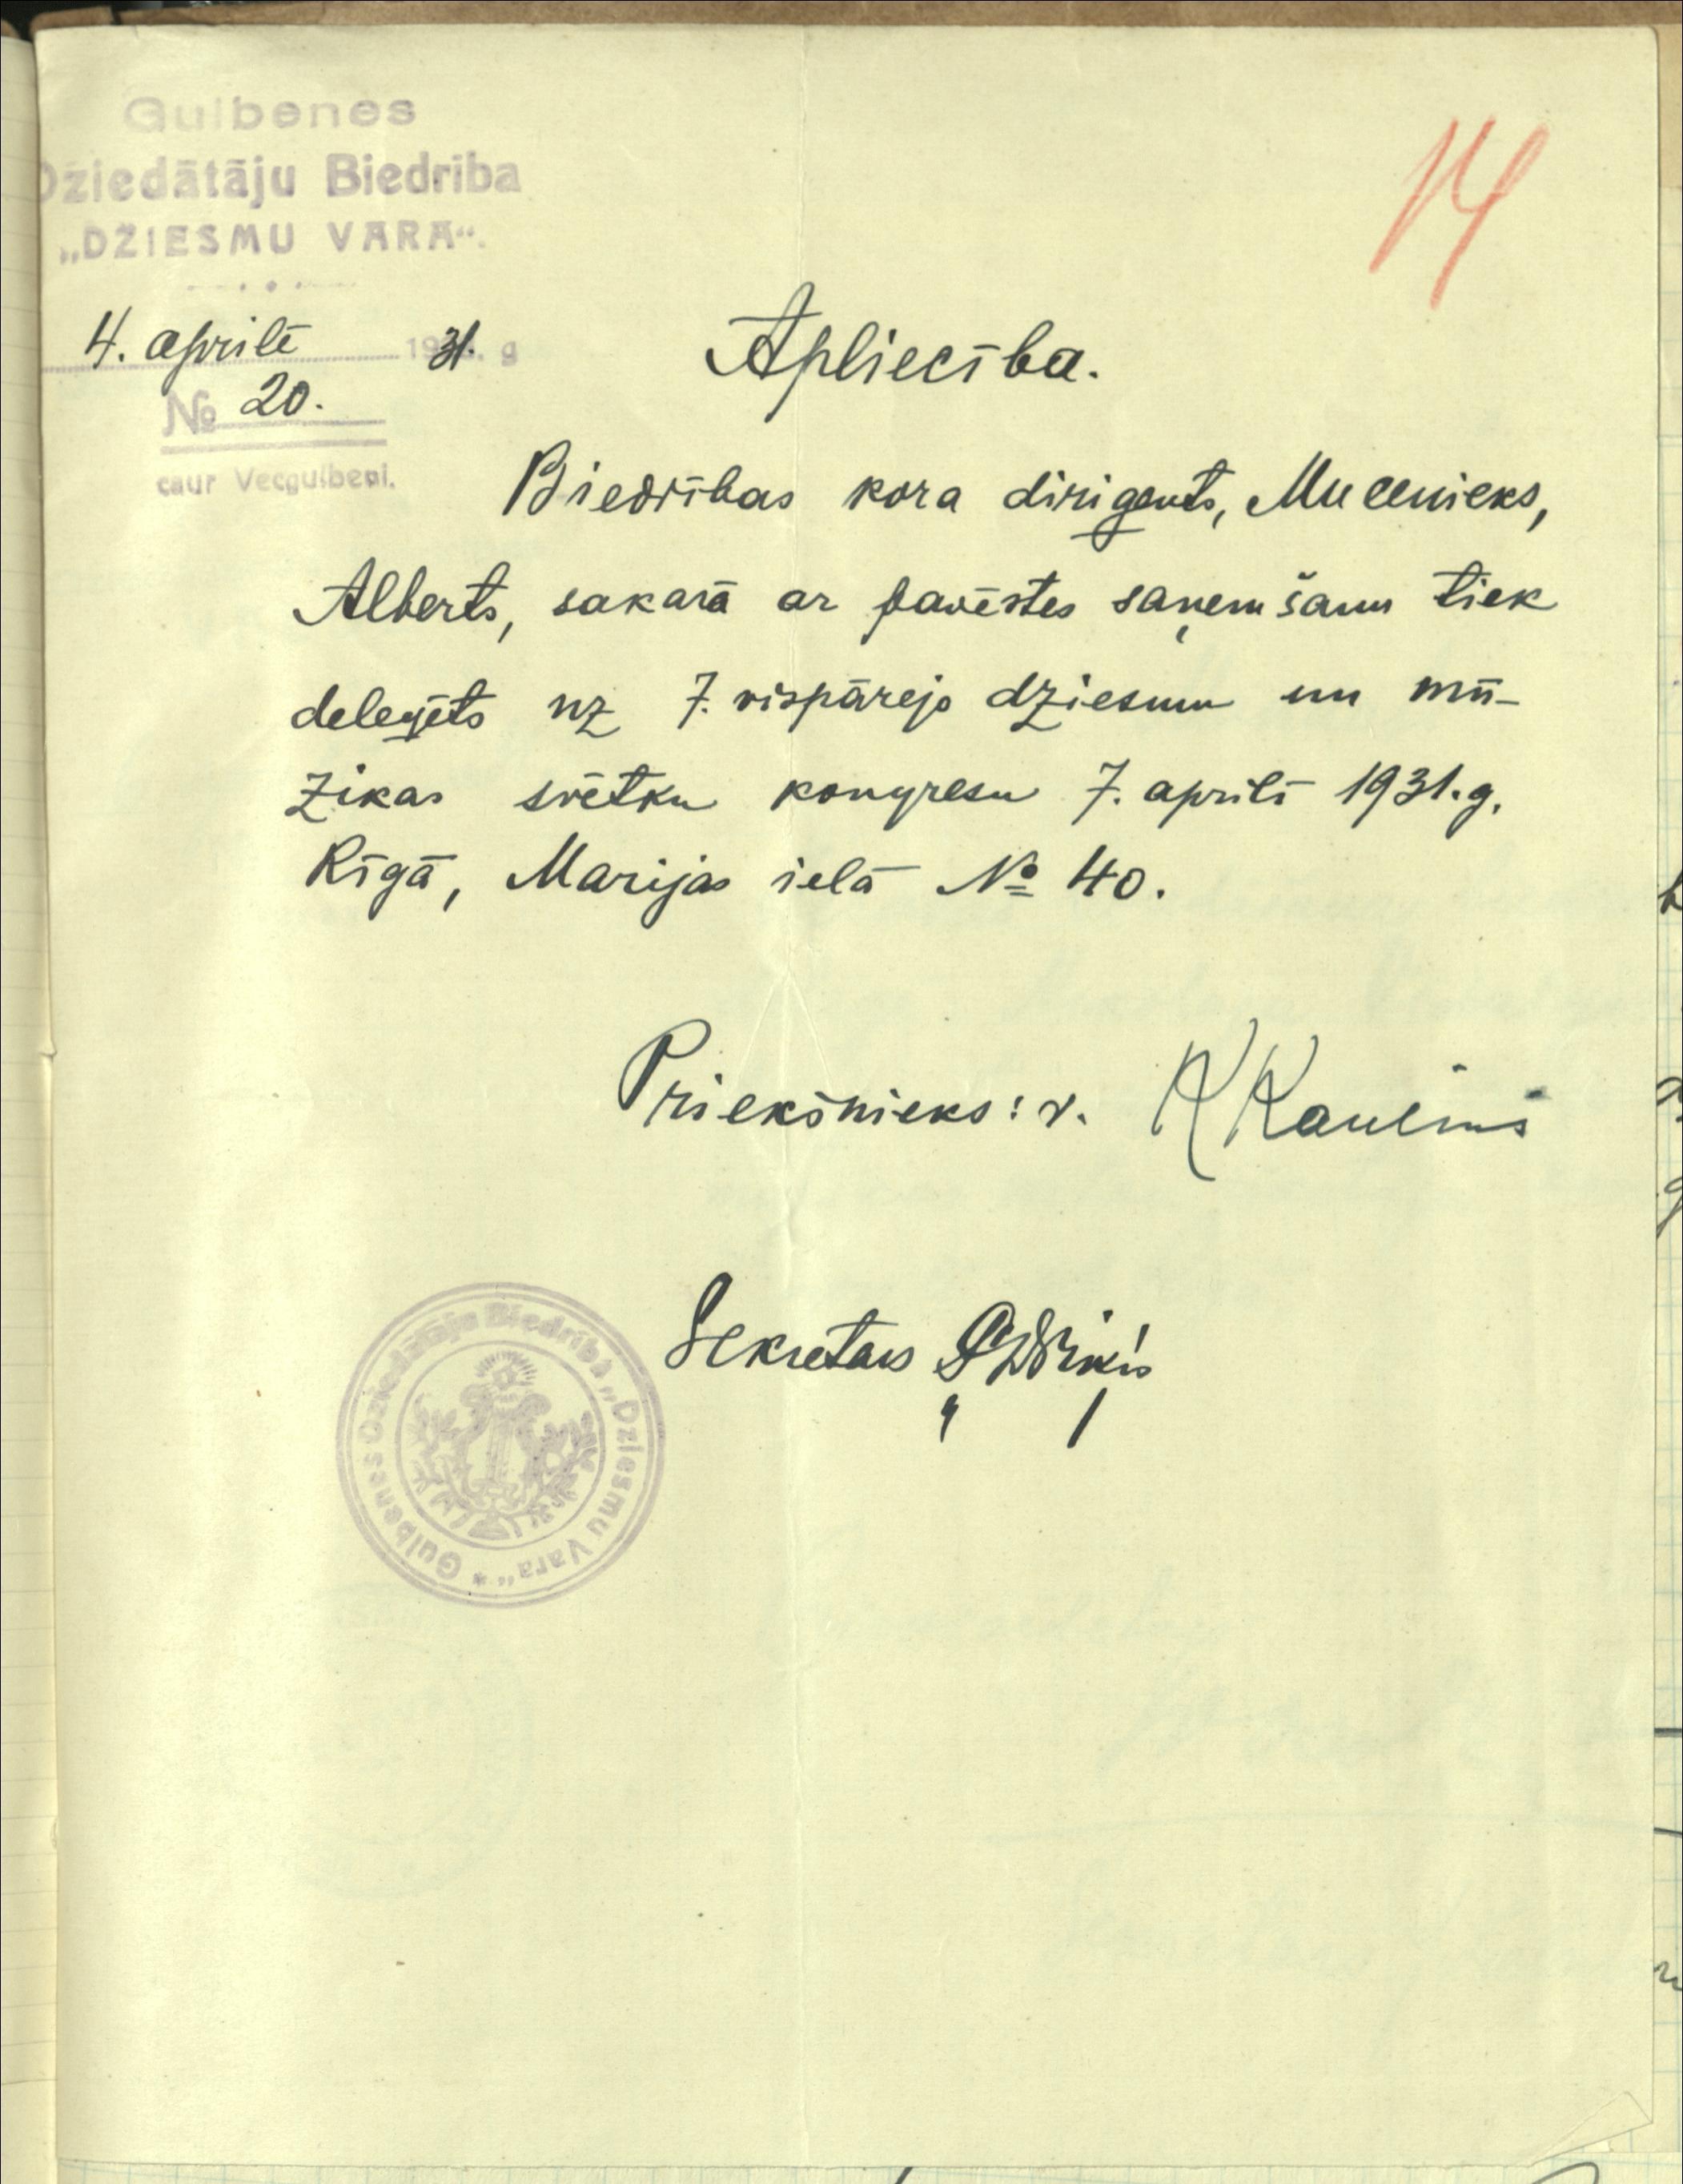 Gulbenes
Dziedātāju Biedrība
„DZIESMU VARA“.
4. aprilī 1931. g
№ 20.
caur Vecgulbeni.
14
Apliecība.
Biedrības kora dirigents, Mucenieks,
Alberts, sakarā ar pavēstes saņemšanu tiek
deleģēts uz 7. vispārejo dziesmu un mū-
zikas svētku kongresu 7. aprilī 1931. g.
Rīgā, Marijas ielā № 40.
Priekšnieks: v. K Kauliņš
Sekretars
Gulbenes Dziedātāju Biedrība „Dziesmu Vara“ *